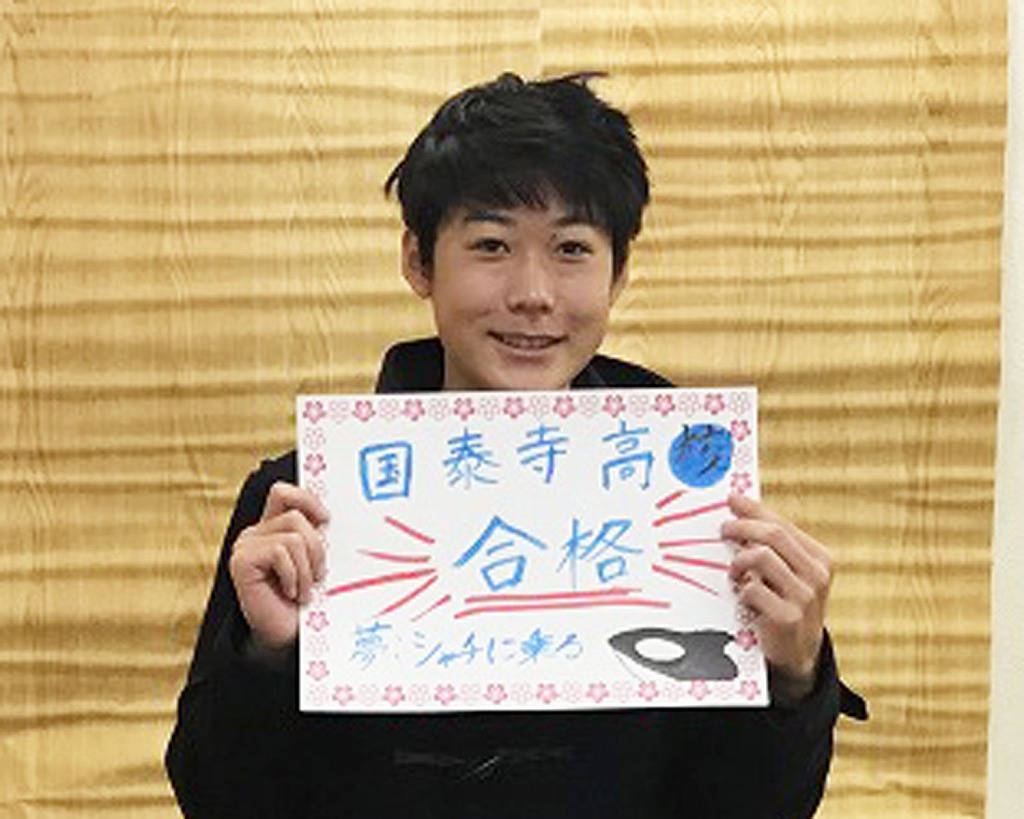 国泰寺高校
合格
夢:シャチに乗る